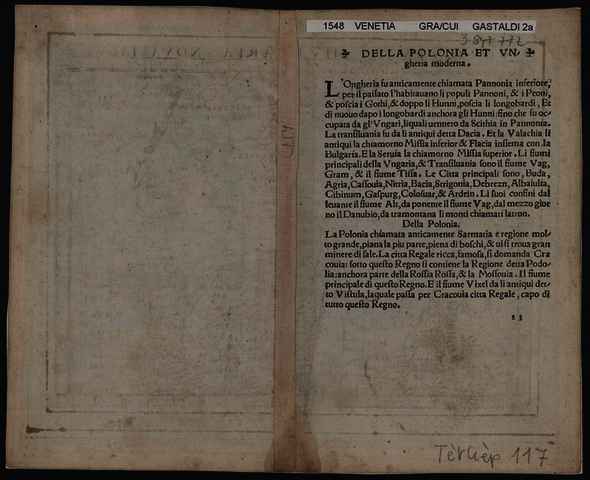 1548 VENETIA GRA/CUI GASTALDI 2a
DELLA POLONIA ET VN⸗
gheria moderna.
L'Ongheria fu anticamente chiamata Pannonia inferiore,
per il passato l'habitauano li populi Pannoni, & i Peoni,
& poscia i Gothi, & doppo li Hunni, poscia li longobardi, Et
di nuouo dapo i longobardi anchora gli Hunni: fino che fu oc⸗
cupata da gl'Vngari, liquali uennero da Scithia in Pannonia.
La transiluania fu da li antiqui detta Dacia. Et la Valachia li
antiqui la chiamorno Missia inferior & Flacia insiema con la
Bulgaria. E la Seruia la chiamorno Missia superior. Li fiumi
principali della Vngaria, & Transiluania sono il fiume Vag,
Gram, & il fiume Tissa. Le Citta principali sono, Buda,
Agria, Cassouia, Nitria, Bacia, Strigonia, Debrezn, Albaiulia,
Cibinum, Gaspurg, Colosuar, & Ardein. Li suoi confini dal
leuante il fiume Alt, da ponente il fiume Vag, dal mezzo gior
no il Danubio, da tramontana li monti chiamati
Della Polonia.
La Polonia chiamata anticamente Sarmatia e regione mol⸗
to grande, piana la piu parte, piena di boschi, & ui si troua gran
minere di sale. La citta Regale ricca, famosa, si domanda Cra
couia: sotto questo Regno si contiene la Regione detta Podo⸗
lia: anchora parte della Rossia Rossa, & la Moscouia. Il fiume
principale di questo Regno. E il fiume Vixel da li antiqui det⸗
to Vistula, laquale passa per Cracouia citta Regale, capo di
tutto questo Regno.
117